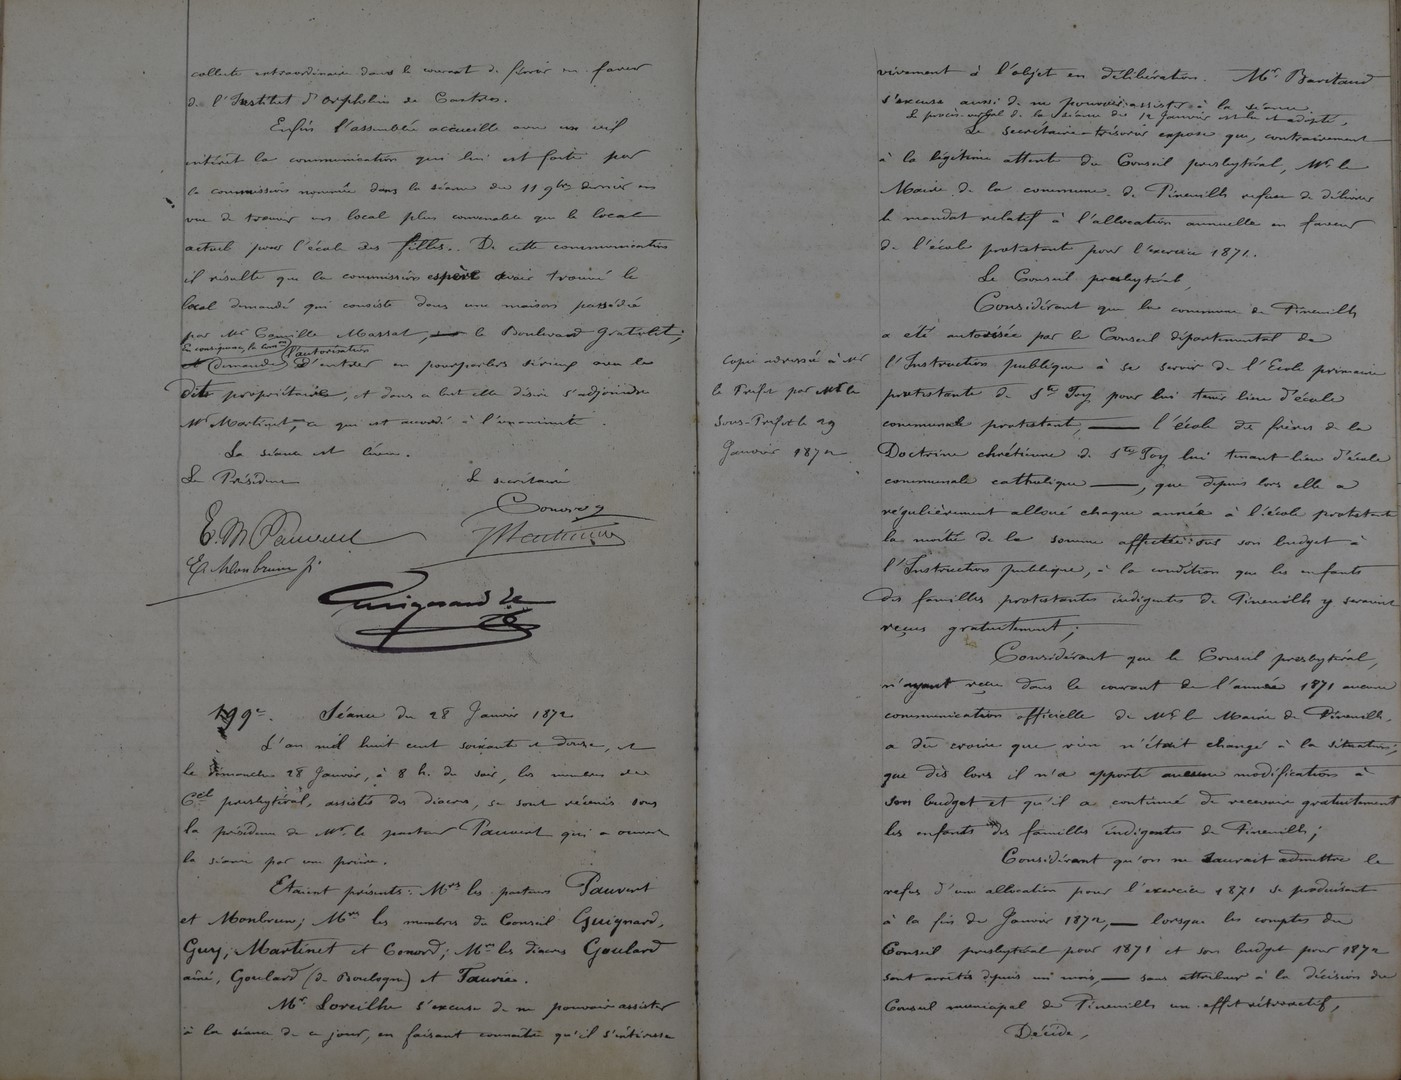 collecte extraordinaire dans le courant de février en faveur
de l'Institut d'Orphelins de Castres.
Enfin l'assemblée accueille avec un vif
intérêt la communication qui lui est faite par
la commission nommée dans la séance du 11 9bre dernier en
vue de trouver un local plus convenable que le local
actuel pour l'école des filles. De cette communication
il résulte que la commission espère avoir trouvé le
local demandé qui consiste dans une maison possédée
par Mr Camille Massat, le Boulevard Gratiolet;
En conséquence, la Comon l'autorisation
et demande d'entrer en pourparlers sérieux avec le
dit propriétaire, et dans ce but elle désire s'adjoindre
Mr Martinet, ce qui est accordé à l'unanimité.
La séance est levée.
Le Président Le secrétaire
Conord
E. M Pauvert Martinet
E. Monbrun fi
Guignard
199e. Séance du 28 Janvier 1872
L'an mil huit cent soixante et douze, et
le dimanche 28 Janvier, à 8 h. du soir, les membres du
Cel presbytéral, assistés des diacres, se sont réunis sous
la présidence de Mr. le pasteur Pauvert qui a ouvert
la séance par une prière.
Etaient présents: Mrs les pasteurs Pauvert
et Monbrun; Mrs les membres du Conseil Guignard,
Guy, Martinet et Conord; Mrs les diacres Goulard
aîné, Goulard (de Boulogne) et Faurie.
Mr. Loreilhe s'excuse de ne pouvoir assister
à la séance de ce jour, en faisant connaître qu'il s'intéresse
vivement à l'objet en délibération. Mr. Baretaud
s'excuse aussi de ne pouvoir assister à la séance.
Le procès-verbal de la séance du 12 Janvier est lu et adopté.
Le secrétaire-trésorier expose que, contrairement
à la légitime attente du Conseil presbytéral, Mr. le
Maire de la commune de Pineuilh refuse de délivrer
le mandat relatif à l'allocation annuelle en faveur
de l'école protestante pour l'exercice 1871.
Le Conseil presbytéral,
Considérant que la commune de Pineuilh
a été autorisée par le Conseil départemental de
l'Instruction publique à se servir de l'Ecole primaire
protestante de Ste Foy pour lui tenir lieu d'école
communale protestante, — l'école des frères de la
Doctrine chrétienne de Ste Foy lui tenant lieu d'école
communale catholique —, que depuis lors elle a
régulièrement alloué chaque année à l'école protestante
la moitié de la somme affectée sur son budget à
l'Instruction publique, à la condition que les enfants
des familles protestantes indigentes de Pineuilh y seraient
reçus gratuitement;
Considérant que le Conseil presbytéral,
n'ayant reçu dans le courant de l'année 1871 aucune
communication officielle de Mr le Maire de Pineuilh,
a dû croire que rien n'était changé à la situation;
que dès lors il n'a apporté aucune modification à
son budget et qu'il a continué de recevoir gratuitement
les enfants des familles indigentes de Pineuilh;
Considérant qu'on ne saurait admettre le
refus d'une allocation pour l'exercice 1871 se produisant
à la fin de Janvier 1872, — lorsque les comptes du
Conseil presbytéral pour 1871 et son budget pour 1872
sont arrêtés depuis un mois, — sans attribuer à la décision du
Conseil municipal de Pineuilh un effet rétroactif,
Décide,
Copie adressée à Mr
le Préfet par Mr le
Sous-Préfet le 29
Janvier 1872